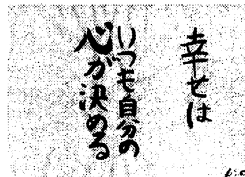 幸せは
いつも自分の
心が決める